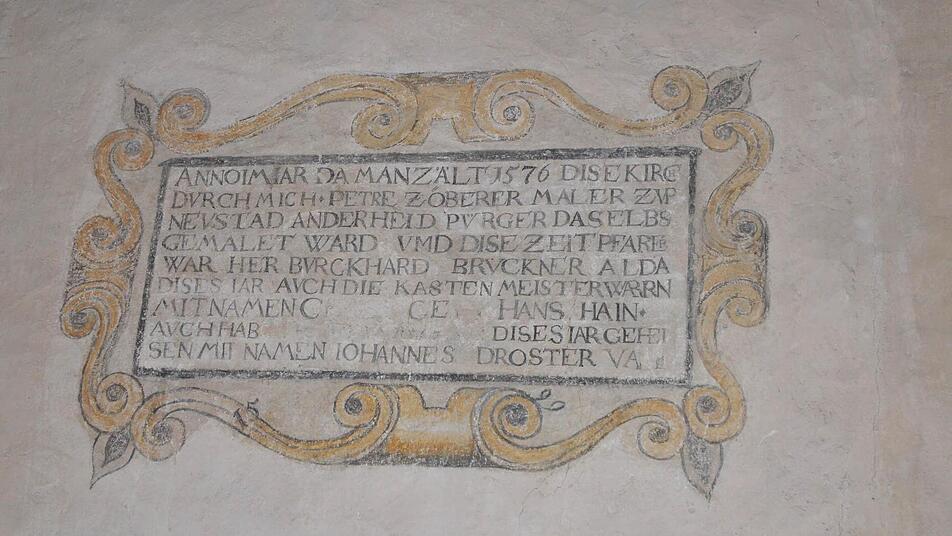 ANNO IM IAR DA MAN ZÄLT 1576 DISE KIRC
DVRCH MICH · PETRE ZÖBERER MALER ZVR
NEVSTAD AN DER HEID PÜRGER DASELBS
GEMALET WARD VMD DISE ZEIT PFARHE
WAR HER BVRCKHARD BRVCKNER ALDA
DISES IAR AVCH DIE KASTEN MEISTER WARN
MIT NAMEN HANS HAIN ·
AVCH HAB DISES IAR GEHEI
SEN MIT NAMEN IOHANNES DROSTER
15